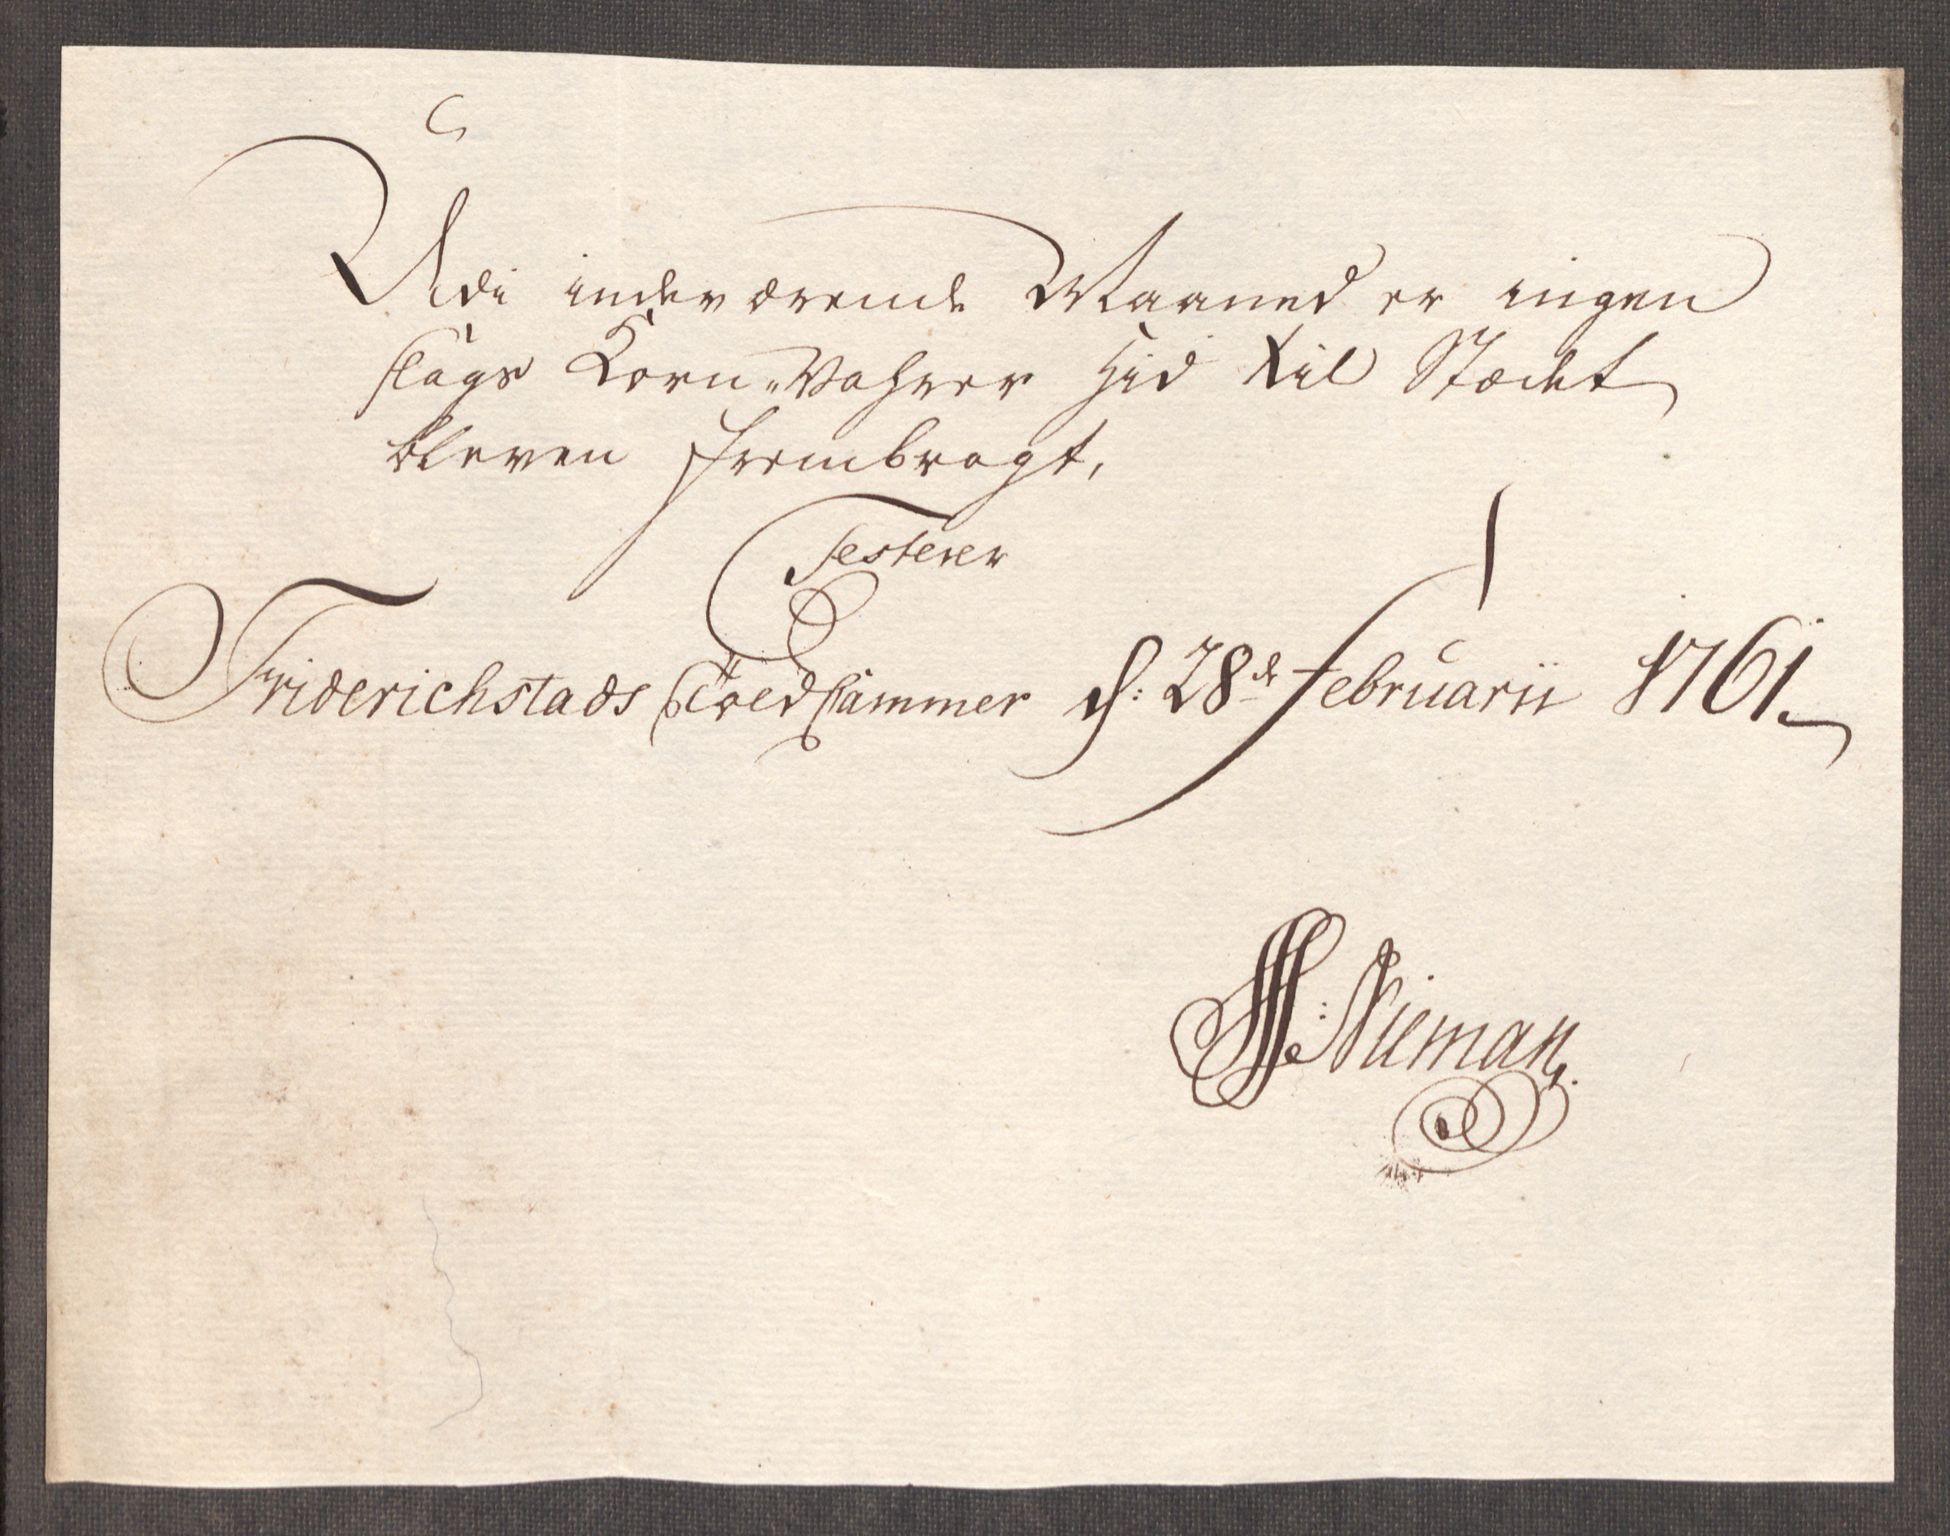 Udi indeværende Maaned er ingen
slags Korn-Vahrer hid til Stædet
bleven frembragt,
Testerer
Friderichstads Told Cammer d: 28de Februarii 1761.
Nieman